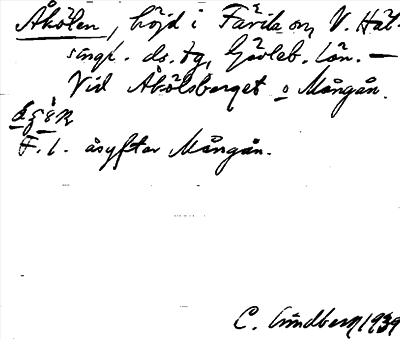 Åkölen, höjd i Färila sn, V. Häl-
singl. ds. dg, Gävleb. län. —
Vid Åkölsberget o Mångån.
F. l. åsyftar Mångån.
C. Lindberg 1939